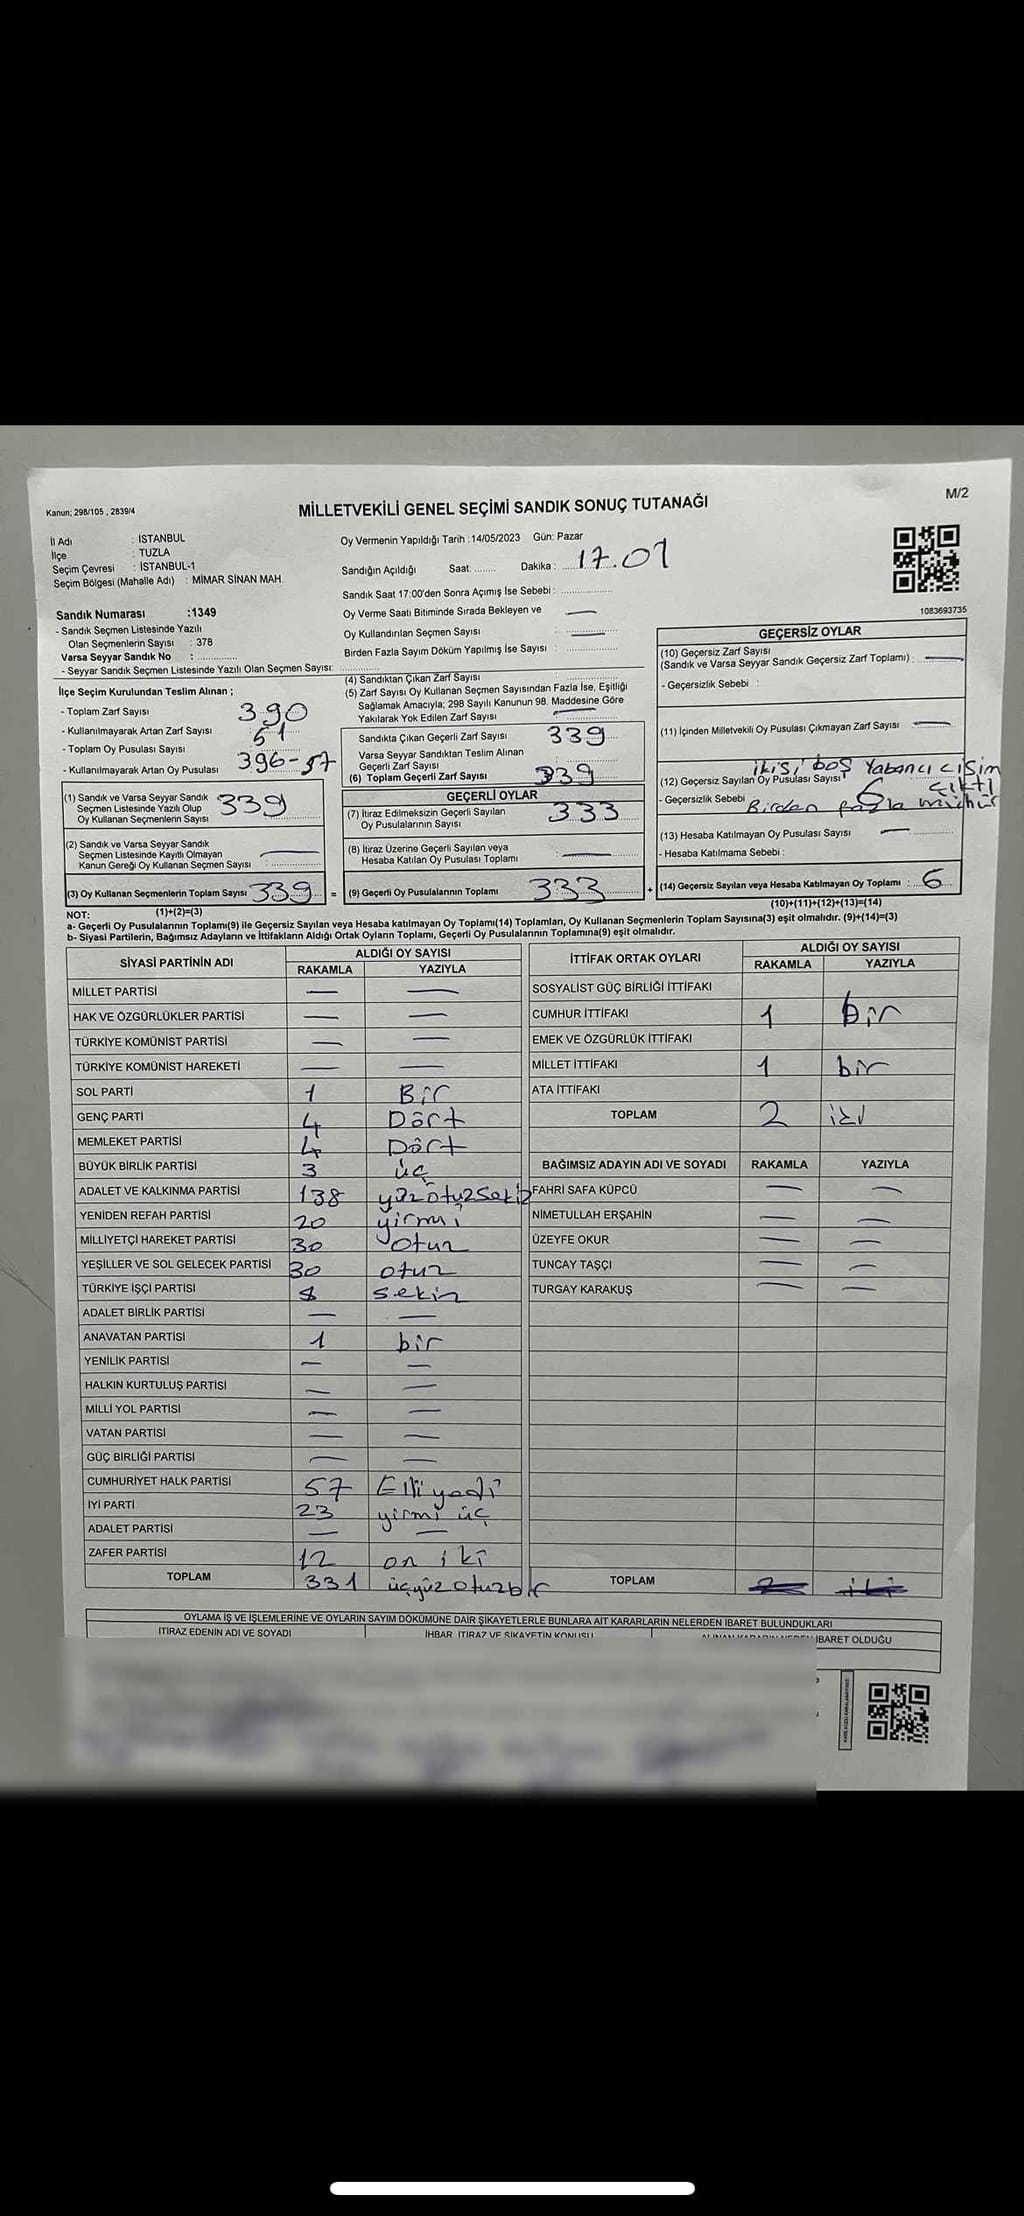 Kanun; 298/105 , 2839/4
MİLLETVEKİLİ GENEL SEÇİMİ SANDIK SONUÇ TUTANAĞI
M/2
İl Adı : İSTANBUL
İlçe : TUZLA
Seçim Çevresi : İSTANBUL-1
Seçim Bölgesi (Mahalle Adı) : MİMAR SİNAN MAH.
Sandık Numarası :1349
- Sandık Seçmen Listesinde Yazılı
Olan Seçmenlerin Sayısı : 378
Varsa Seyyar Sandık No :
- Seyyar Sandık Seçmen Listesinde Yazılı Olan Seçmen Sayısı:
Oy Vermenin Yapıldığı Tarih :14/05/2023 Gün: Pazar
Sandığın Açıldığı Saat: Dakika : 17.01
Sandık Saat 17:00'den Sonra Açımış İse Sebebi :
Oy Verme Saati Bitiminde Sırada Bekleyen ve —
Oy Kullandırılan Seçmen Sayısı : —
Birden Fazla Sayım Döküm Yapılmış İse Sayısı :
1083693735
İlçe Seçim Kurulundan Teslim Alınan ;
- Toplam Zarf Sayısı 390
- Kullanılmayarak Artan Zarf Sayısı 51
- Toplam Oy Pusulası Sayısı
- Kullanılmayarak Artan Oy Pusulası 396-57
(1) Sandık ve Varsa Seyyar Sandık
Seçmen Listesinde Yazılı Olup 339
Oy Kullanan Seçmenlerin Sayısı
(2) Sandık ve Varsa Seyyar Sandık
Seçmen Listesinde Kayıtlı Olmayan —
Kanun Gereği Oy Kullanan Seçmen Sayısı :
(3) Oy Kullanan Seçmenlerin Toplam Sayısı 339 =
(1)+(2)=(3)
(4) Sandıktan Çıkan Zarf Sayısı
(5) Zarf Sayısı Oy Kullanan Seçmen Sayısından Fazla İse, Eşitliği
Sağlamak Amacıyla; 298 Sayılı Kanunun 98. Maddesine Göre
Yakılarak Yok Edilen Zarf Sayısı —
Sandıkta Çıkan Geçerli Zarf Sayısı 339
Varsa Seyyar Sandıktan Teslim Alınan
Geçerli Zarf Sayısı
(6) Toplam Geçerli Zarf Sayısı 339
GEÇERLİ OYLAR
(7) İtiraz Edilmeksizin Geçerli Sayılan 333
Oy Pusulalarının Sayısı
(8) İtiraz Üzerine Geçerli Sayılan veya
Hesaba Katılan Oy Pusulası Toplamı : —
(9) Geçerli Oy Pusulalarının Toplamı 333 +
GEÇERSİZ OYLAR
(10) Geçersiz Zarf Sayısı
(Sandık ve Varsa Seyyar Sandık Geçersiz Zarf Toplamı) : —
- Geçersizlik Sebebi :
(11) İçinden Milletvekili Oy Pusulası Çıkmayan Zarf Sayısı —
ikisi boş Yabancı cisim
(12) Geçersiz Sayılan Oy Pusulası Sayısı 6 çıktı
- Geçersizlik Sebebi Birden fazla mühür
(13) Hesaba Katılmayan Oy Pusulası Sayısı —
- Hesaba Katılmama Sebebi :
(14) Geçersiz Sayılan veya Hesaba Katılmayan Oy Toplamı : 6
(10)+(11)+(12)+(13)=(14)
NOT:
a- Geçerli Oy Pusulalarının Toplamı(9) ile Geçersiz Sayılan veya Hesaba katılmayan Oy Toplamı(14) Toplamları, Oy Kullanan Seçmenlerin Toplam Sayısına(3) eşit olmalıdır. (9)+(14)=(3)
b- Siyasi Partilerin, Bağımsız Adayların ve İttifakların Aldığı Ortak Oyların Toplamı, Geçerli Oy Pusulalarının Toplamına(9) eşit olmalıdır.
SİYASİ PARTİNİN ADI ALDIĞI OY SAYISI
RAKAMLA YAZIYLA
MİLLET PARTİSİ — —
HAK VE ÖZGÜRLÜKLER PARTİSİ — —
TÜRKİYE KOMÜNİST PARTİSİ — —
TÜRKİYE KOMÜNİST HAREKETİ — —
SOL PARTİ 1 Bir
GENÇ PARTİ 4 Dört
MEMLEKET PARTİSİ 4 Dört
BÜYÜK BİRLİK PARTİSİ 3 üç
ADALET VE KALKINMA PARTİSİ 138 yüzotuzsekiz
YENİDEN REFAH PARTİSİ 20 yirmi
MİLLİYETÇİ HAREKET PARTİSİ 30 otuz
YEŞİLLER VE SOL GELECEK PARTİSİ 30 otuz
TÜRKİYE İŞÇİ PARTİSİ 8 sekiz
ADALET BİRLİK PARTİSİ — —
ANAVATAN PARTİSİ 1 bir
YENİLİK PARTİSİ — —
HALKIN KURTULUŞ PARTİSİ — —
MİLLİ YOL PARTİSİ — —
VATAN PARTİSİ — —
GÜÇ BİRLİĞİ PARTİSİ — —
CUMHURİYET HALK PARTİSİ 57 Elli yedi
İYİ PARTİ 23 yirmi üç
ADALET PARTİSİ — —
ZAFER PARTİSİ 12 on iki
TOPLAM 331 üçyüzotuzbir
İTTİFAK ORTAK OYLARI ALDIĞI OY SAYISI
RAKAMLA YAZIYLA
SOSYALİST GÜÇ BİRLİĞİ İTTİFAKI
CUMHUR İTTİFAKI 1 bir
EMEK VE ÖZGÜRLÜK İTTİFAKI
MİLLET İTTİFAKI 1 bir
ATA İTTİFAKI
TOPLAM 2 iki
BAĞIMSIZ ADAYIN ADI VE SOYADI RAKAMLA YAZIYLA
FAHRİ SAFA KÜPCÜ — —
NİMETULLAH ERŞAHİN — —
ÜZEYFE OKUR — —
TUNCAY TAŞÇI — —
TURGAY KARAKUŞ — —
TOPLAM 2 iki
OYLAMA İŞ VE İŞLEMLERİNE VE OYLARIN SAYIM DÖKÜMÜNE DAİR ŞİKAYETLERLE BUNLARA AİT KARARLARIN NELERDEN İBARET BULUNDUKLARI
İTİRAZ EDENİN ADI VE SOYADI İHBAR, İTİRAZ VE ŞİKAYETİN KONUSU İBARET OLDUĞU